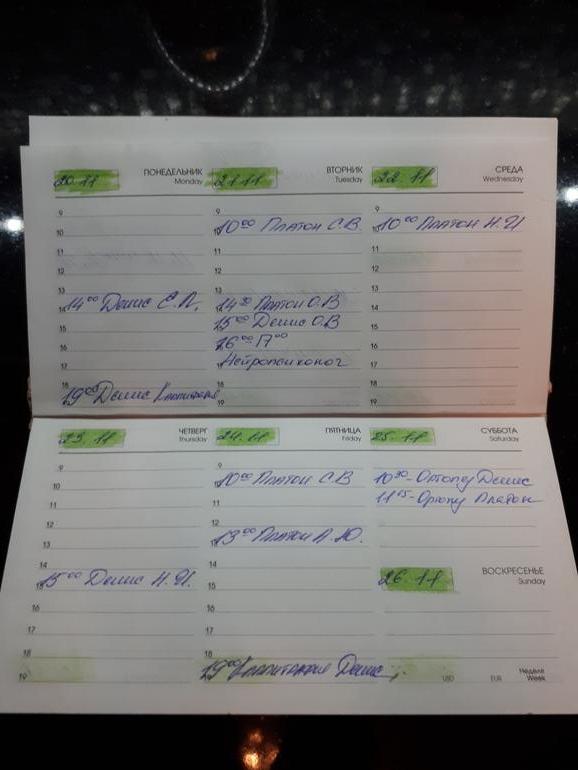 20.11 ПОНЕДЕЛЬНИК
Monday
9
10
11
12
13
14⁰⁰ Денис С.Л.
14
15
16
17
18
19⁰⁰ Денис
19
21.11 ВТОРНИК
Tuesday
9
10⁰⁰ Платон С.В.
10
11
12
13
14³⁰ Платон О.В
14
15⁰⁰ Денис О.В
15
16⁰⁰-17⁰⁰
16
Нейропсихолог
17
18
19
22.11 СРЕДА
Wednesday
9
10⁰⁰ Платон Н.И
10
11
12
13
14
15
16
17
18
19
23.11 ЧЕТВЕРГ
Thursday
9
10
11
12
13
14
15⁰⁰ Денис Н.И.
15
16
17
18
19
24.11 ПЯТНИЦА
Friday
9
10⁰⁰ Платон С.В
10
11
12
13⁰⁰ Платон А.Ю.
13
14
15
16
17
18
19⁰⁰ Капитания Денис
19
25.11 СУББОТА
Saturday
10³⁰- Ортопед Денис
11¹⁵- Ортопед Платон
26.11 ВОСКРЕСЕНЬЕ
Sunday
USD EUR Неделя
Week